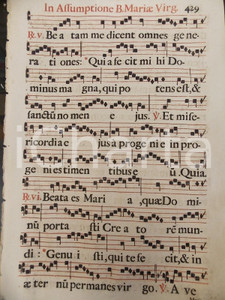 In Assumptione B. Mariæ Virg. 429
℟.v. Be a tam me dicent omnes ge ne-
ra ti ones: Quia fe cit mi hi Do-
minus ma gna, qui po tens est, &
sanctũ no men e jus. ℣. Et mise-
ricordi a e jus a proge ni e in pro-
ge ni es ti men tibus e ũ. Quia.
℟.vi. Beata es Mari a, quæ Do mi-
nũ porta sti Cre a to rẽ mun-
di: Ge nu i sti, qui te fe cit, & in
æ ter nũ permanes vir go. ℣. A ve